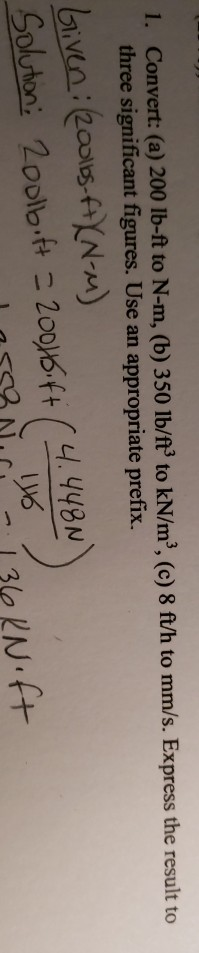 1. Convert: (a) 200 lb-ft to N-m, (b) 350 lb/ft³ to kN/m³, (c) 8 ft/h to mm/s. Express the result to
three significant figures. Use an appropriate prefix.
Given: (200lbs-ft)(N-m)
Solution: 200lb·ft = 200lb·ft (4.448N
1lb)
36 KN·ft